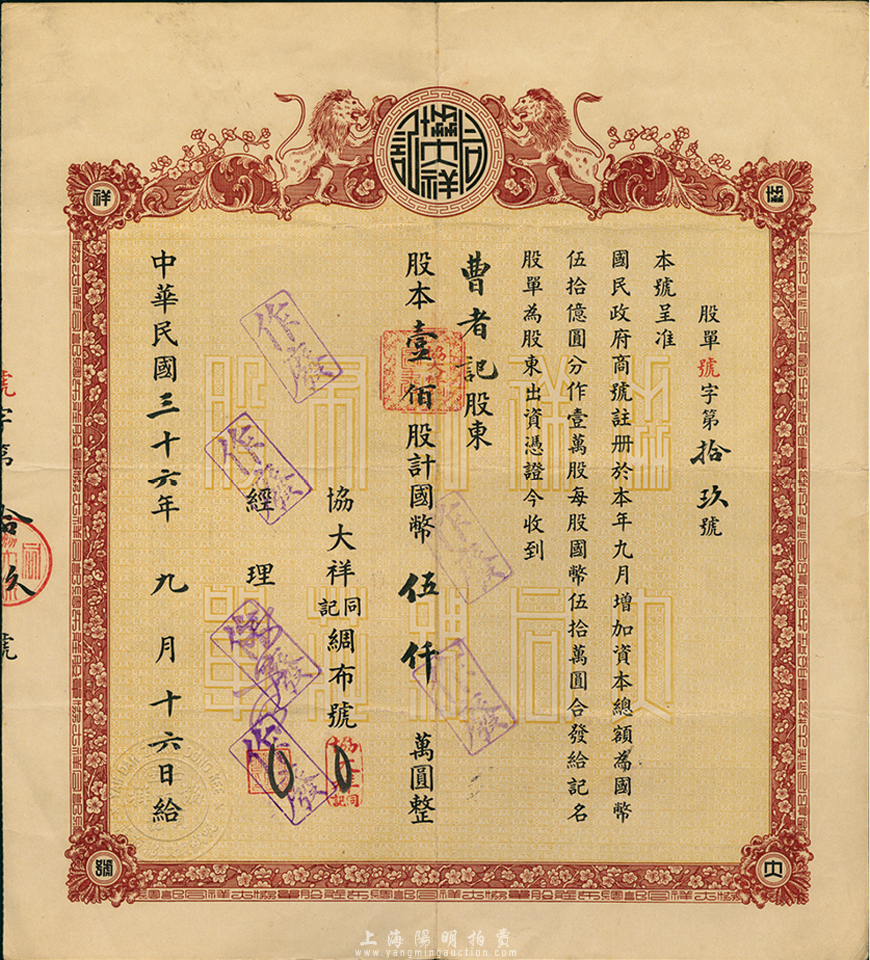 協大祥同記
協
祥
大
號
股單號字第拾玖號
本號呈准
國民政府商號註册於本年九月增加資本總額為國幣
伍拾億圓分作壹萬股每股國幣伍拾萬圓合發給記名
股單為股東出資憑證今收到
曹者記股東
股本壹佰股計國幣伍仟萬圓整
協大祥同記綢布號
經理
中華民國三十六年九月十六日給
作廢
作廢
作廢
作廢
作廢
號字第拾玖號
上海陽明拍賣
www.yangmingauction.com